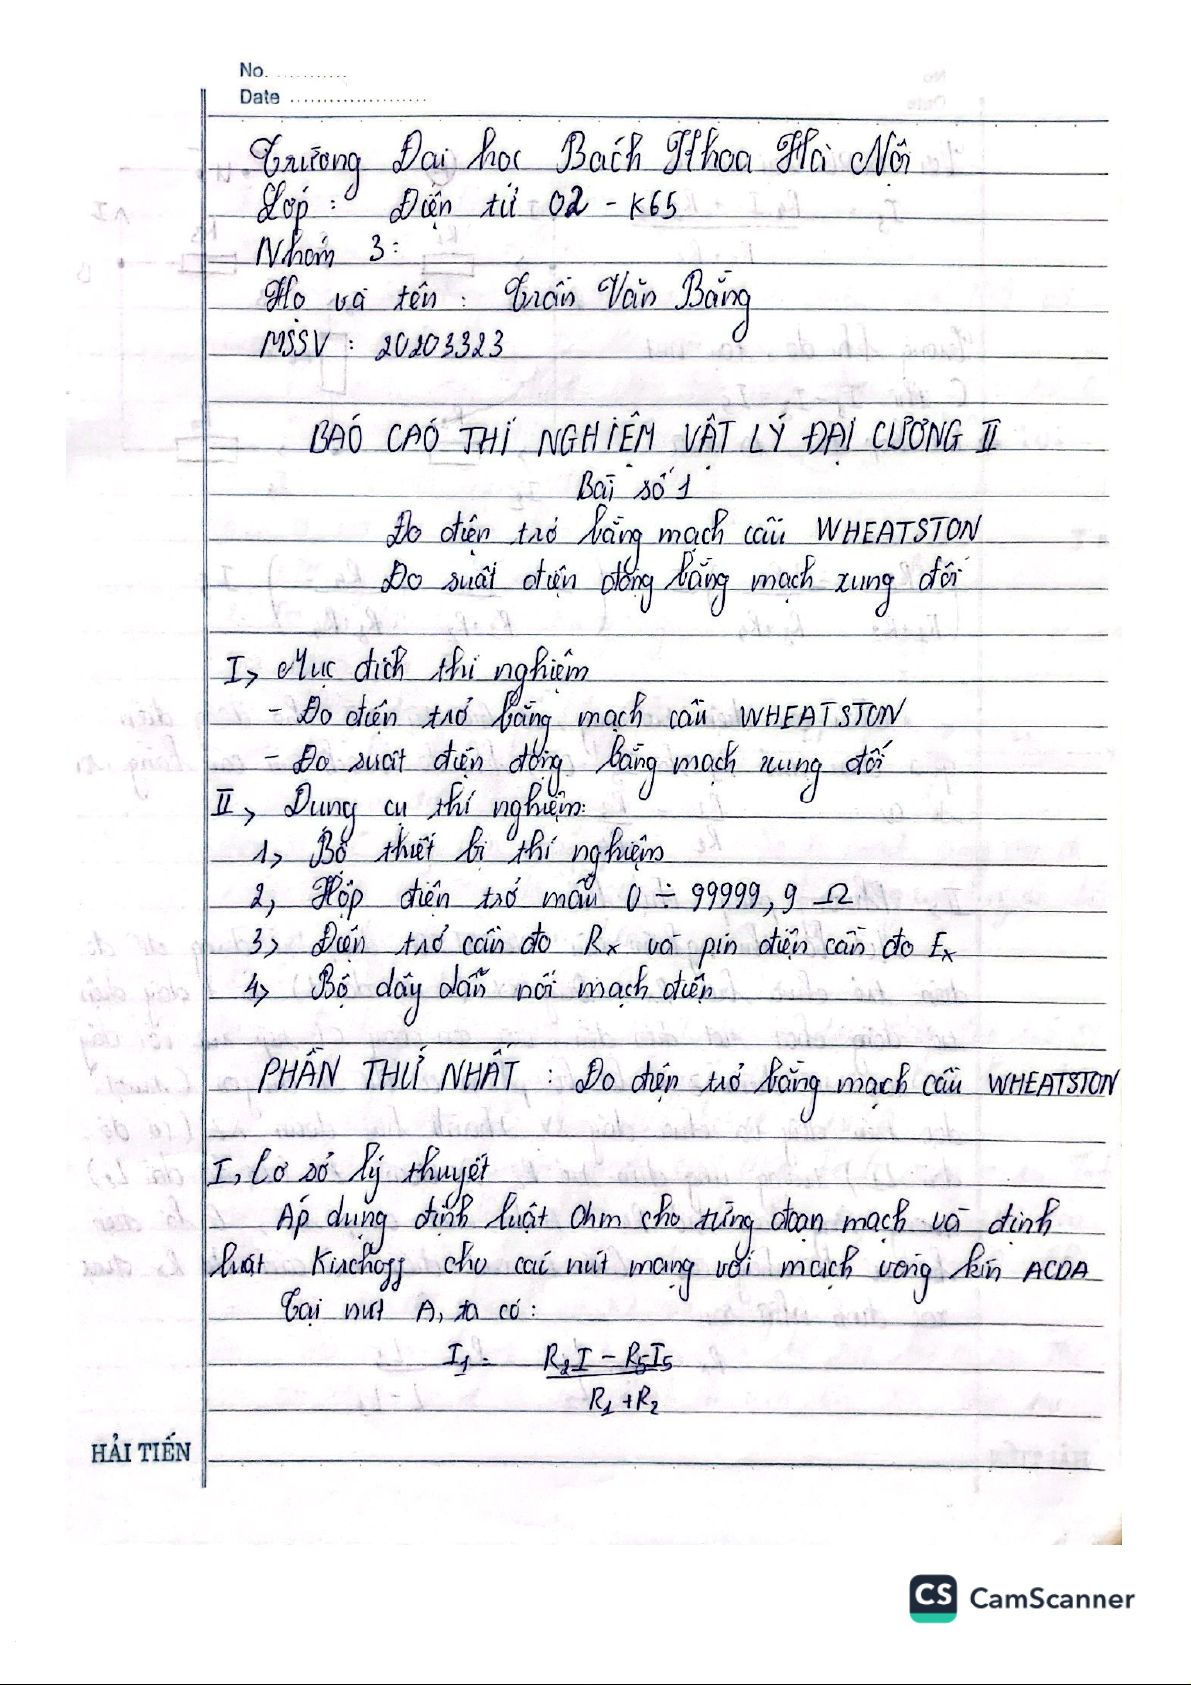 No. ...........
Date .....................
Trường Đại học Bách Khoa Hà Nội
Lớp : Điện tử 02 - K65
Nhóm 3:
Họ và tên : Trần Văn Bằng
MSSV : 20203323
BÁO CÁO THÍ NGHIỆM VẬT LÝ ĐẠI CƯƠNG II
Bài số 1
Đo điện trở bằng mạch cầu WHEATSTON
Đo suất điện động bằng mạch xung đối
I> Mục đích thí nghiệm
- Đo điện trở bằng mạch cầu WHEATSTON
- Đo suất điện động bằng mạch xung đối
II> Dụng cụ thí nghiệm:
1> Bộ thiết bị thí nghiệm
2, Hộp điện trở mẫu 0 ÷ 99999,9 Ω
3> Điện trở cần đo Rx và pin điện cần đo Ex
4> Bộ dây dẫn nối mạch điện
PHẦN THỨ NHẤT : Đo điện trở bằng mạch cầu WHEATSTON
I, Cơ sở lý thuyết
Áp dụng định luật Ohm cho từng đoạn mạch và định
luật Kirchoff cho các nút mạng với mạch vòng kín ACDA
Tại nút A, ta có:
I1 = R2I - R5I5
R1 + R2
HẢI TIẾN
CS CamScanner